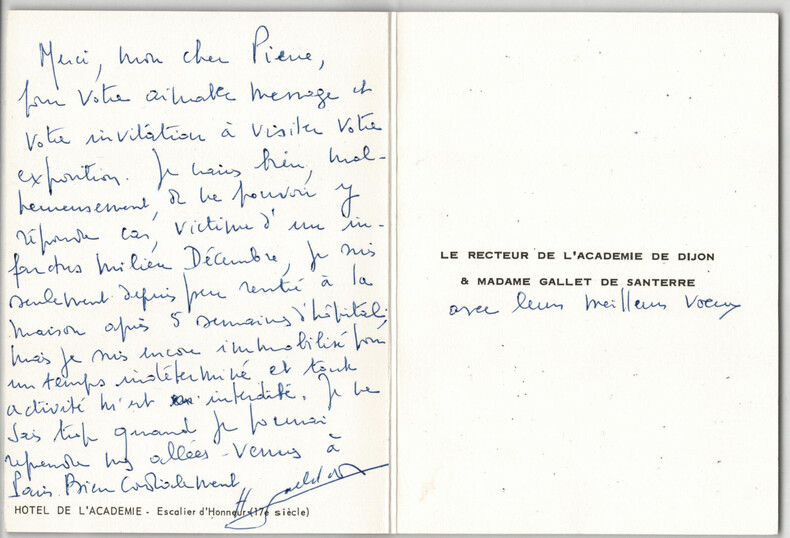 Merci, mon cher Pierre,
pour votre aimable message et
votre invitation à visiter votre
exposition. Je crains bien, mal-
heureusement, de ne pouvoir y
répondre car, victime d'un in-
farctus milieu Décembre, je suis
seulement depuis peu rentré à la
maison après 5 semaines d'hôpital,
mais je suis encore immobilisé pour
un temps indéterminé et toute
activité m'est interdite. Je ne
sais trop quand je pourrai
reprendre mes allées-venues à
Paris Bien Cordialement
HOTEL DE L'ACADEMIE - Escalier d'Honneur (17e siècle)
LE RECTEUR DE L'ACADEMIE DE DIJON
& MADAME GALLET DE SANTERRE
avec leurs meilleurs voeux